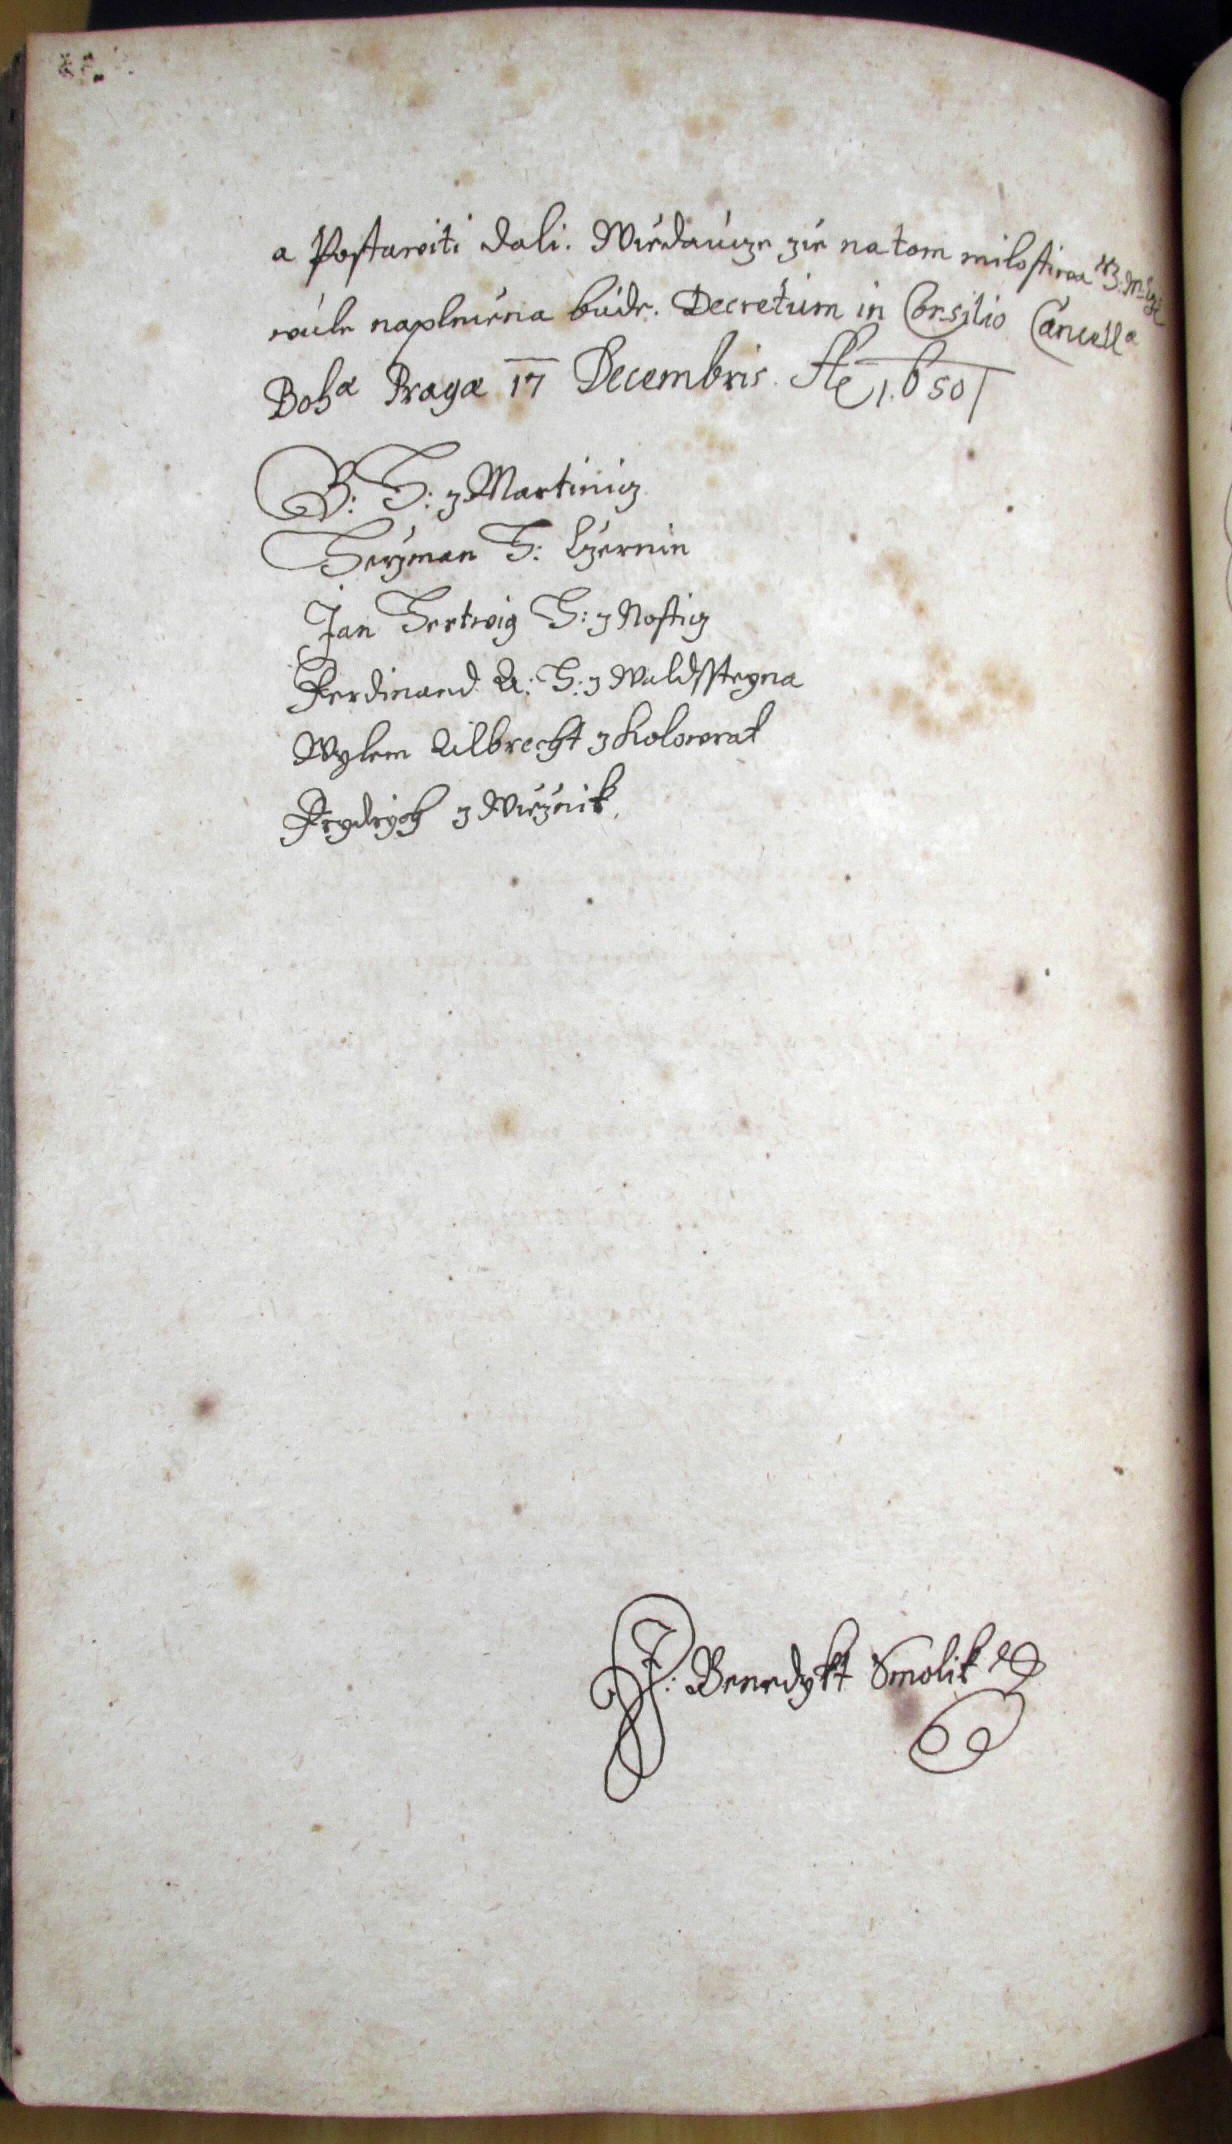 a Postawiti dali. Wiedauize zie na tom milostiwa
wúle naplniena búde. Decretum in Consilio Cancellæ
Bohæ Pragæ 17 Decembris A̅o̅ 1650
B: H: z Martinicz
Herzman H: Czernin
Jan Hertwig H: z Nosticz
Ferdinand A: H: z Waldssteyna
Wylem Albrecht z Kolowrat
Frydrych z Wieznik
J: Benedykt Smolik